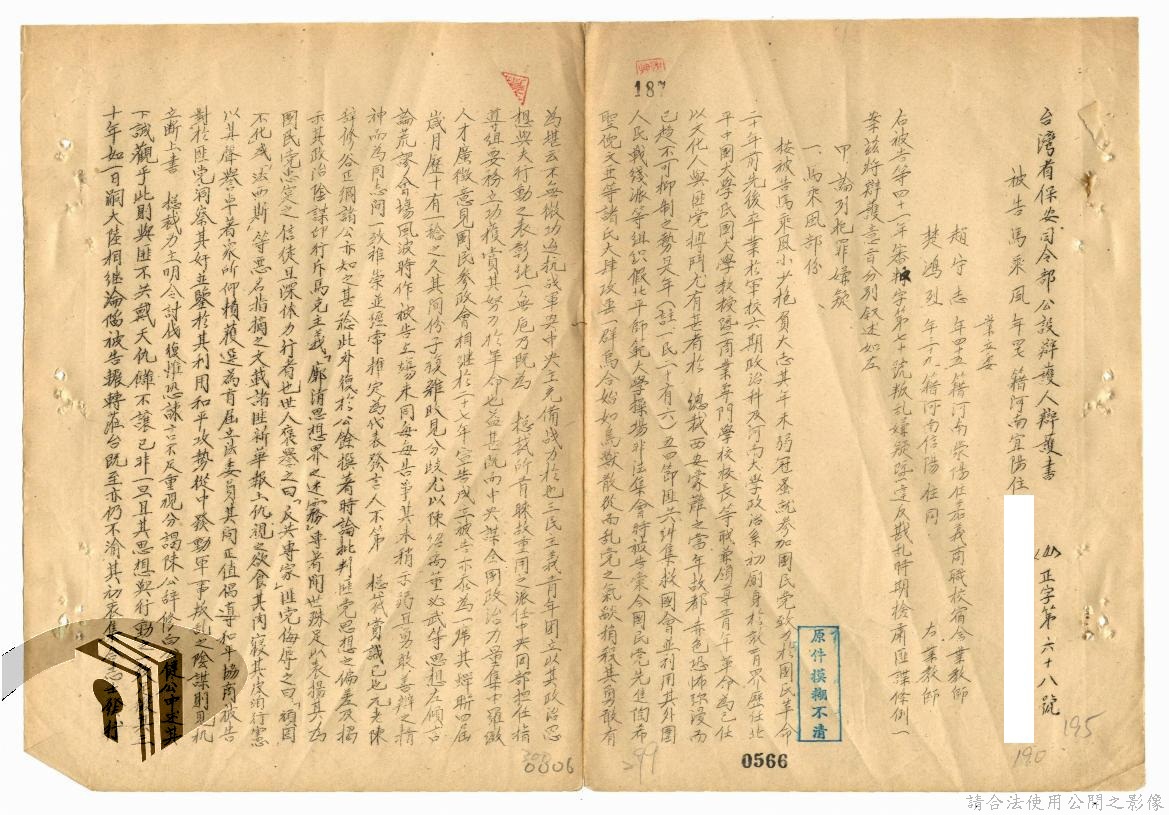 台湾省保安司令部公設辯護人辯護書
(41)正字第六十八號
被告馬乘風 年 籍河南宜陽住
業立委
趙守志 年四五籍河南滎陽住嘉義商職校宿舍業教師
樊鴻烈 年三九籍河南信陽 住同 右業教師
右被告等四十一年審 字第七十號叛乱嫌疑 違反戡乱時期檢肅匪諜條例一
案茲將辯護意旨分別叙述如左
甲、論列犯罪嫌疑
一、馬乘風部份
按被告馬乘風小少抱負大志其年未弱冠 就參加國民党致力於國民革命
二十年前先後卒業於軍校六期政治科及河南大学政治系初廁身於教育界歷任北
平中國大学民國大学教授 商業專門学校校長等職兼 導青年革命為己任
以文化人與匪党搏鬥尤有甚者於 總裁西安蒙難之當年故都赤色恐怖弥漫而
已极不可抑制之勢是年(註:民 十有六)五四節匪共糾集救國會並利用其外圍
人民戰綫派等組織假北平師範大学操場非法集會時被告案今國民党先進陶希
聖倪文亞等諸氏大肆攻 一群烏合始如鳥獸散從而乱党之氣燄稍殺其勇敢有
為堪云不無微功迨抗战軍 中央主充備战力於 三民主義青年團立以其政治思
想與夫行動之表彰純一無疵乃既為 總裁所 重用之派任中央团部把任指
導組要務立功獲賞其努力於革命也益甚既而中央謀全國政治力量集中羅 
人才廣徵意見國民參政會相继於二十七年宣告成立被告亦忝為一席其 聯四屆
歲月歷十有一 之久其间份子複雜政見分歧尤以陳紹禹董必武等思想左傾言
論荒謬會場風波時作被告立場未同每每告爭其未稍示弱且勇敢善辯之精
神而為同志间一致推崇並經常推定為代表發言人不第 總裁賞識已也元老陳
辞修谷正綱諸公亦知之甚稔此外復於公餘撰著時論批判匪党思想之偏差及揭
示其政治陰謀印行斥馬克主義「廓清思想界之迷霧」專著閒世殊足以表揚其為
國民党忠定之信徒且深体力行者也世人褒譽之曰「反共專家」匪党侮辱之曰「頑固
不化」或「法西斯」等惡名指摘之文載諸匪新華報上仇視之欲食其肉寢其皮而行憲
以其聲譽卓著众所仰積獲選為首屆立法委員其间正值倡導和平協商被告
對於匪党洞察其奸並鑒於其利用和平攻勢從中發動軍事 乱陰謀則 机
立斷上書 總裁力主明令討伐復惟恐諫言不反重視分謁陳公辞修
下誠觀乎此則與匪不共戴天仇 不讓已非一旦且其思想與行動之
十年如一日嗣大陸相继淪陷被告輾轉莅台既至亦仍不渝其初衷集
187
0566
0806
299
195
190
原件模糊不清
請合法使用公開之影像